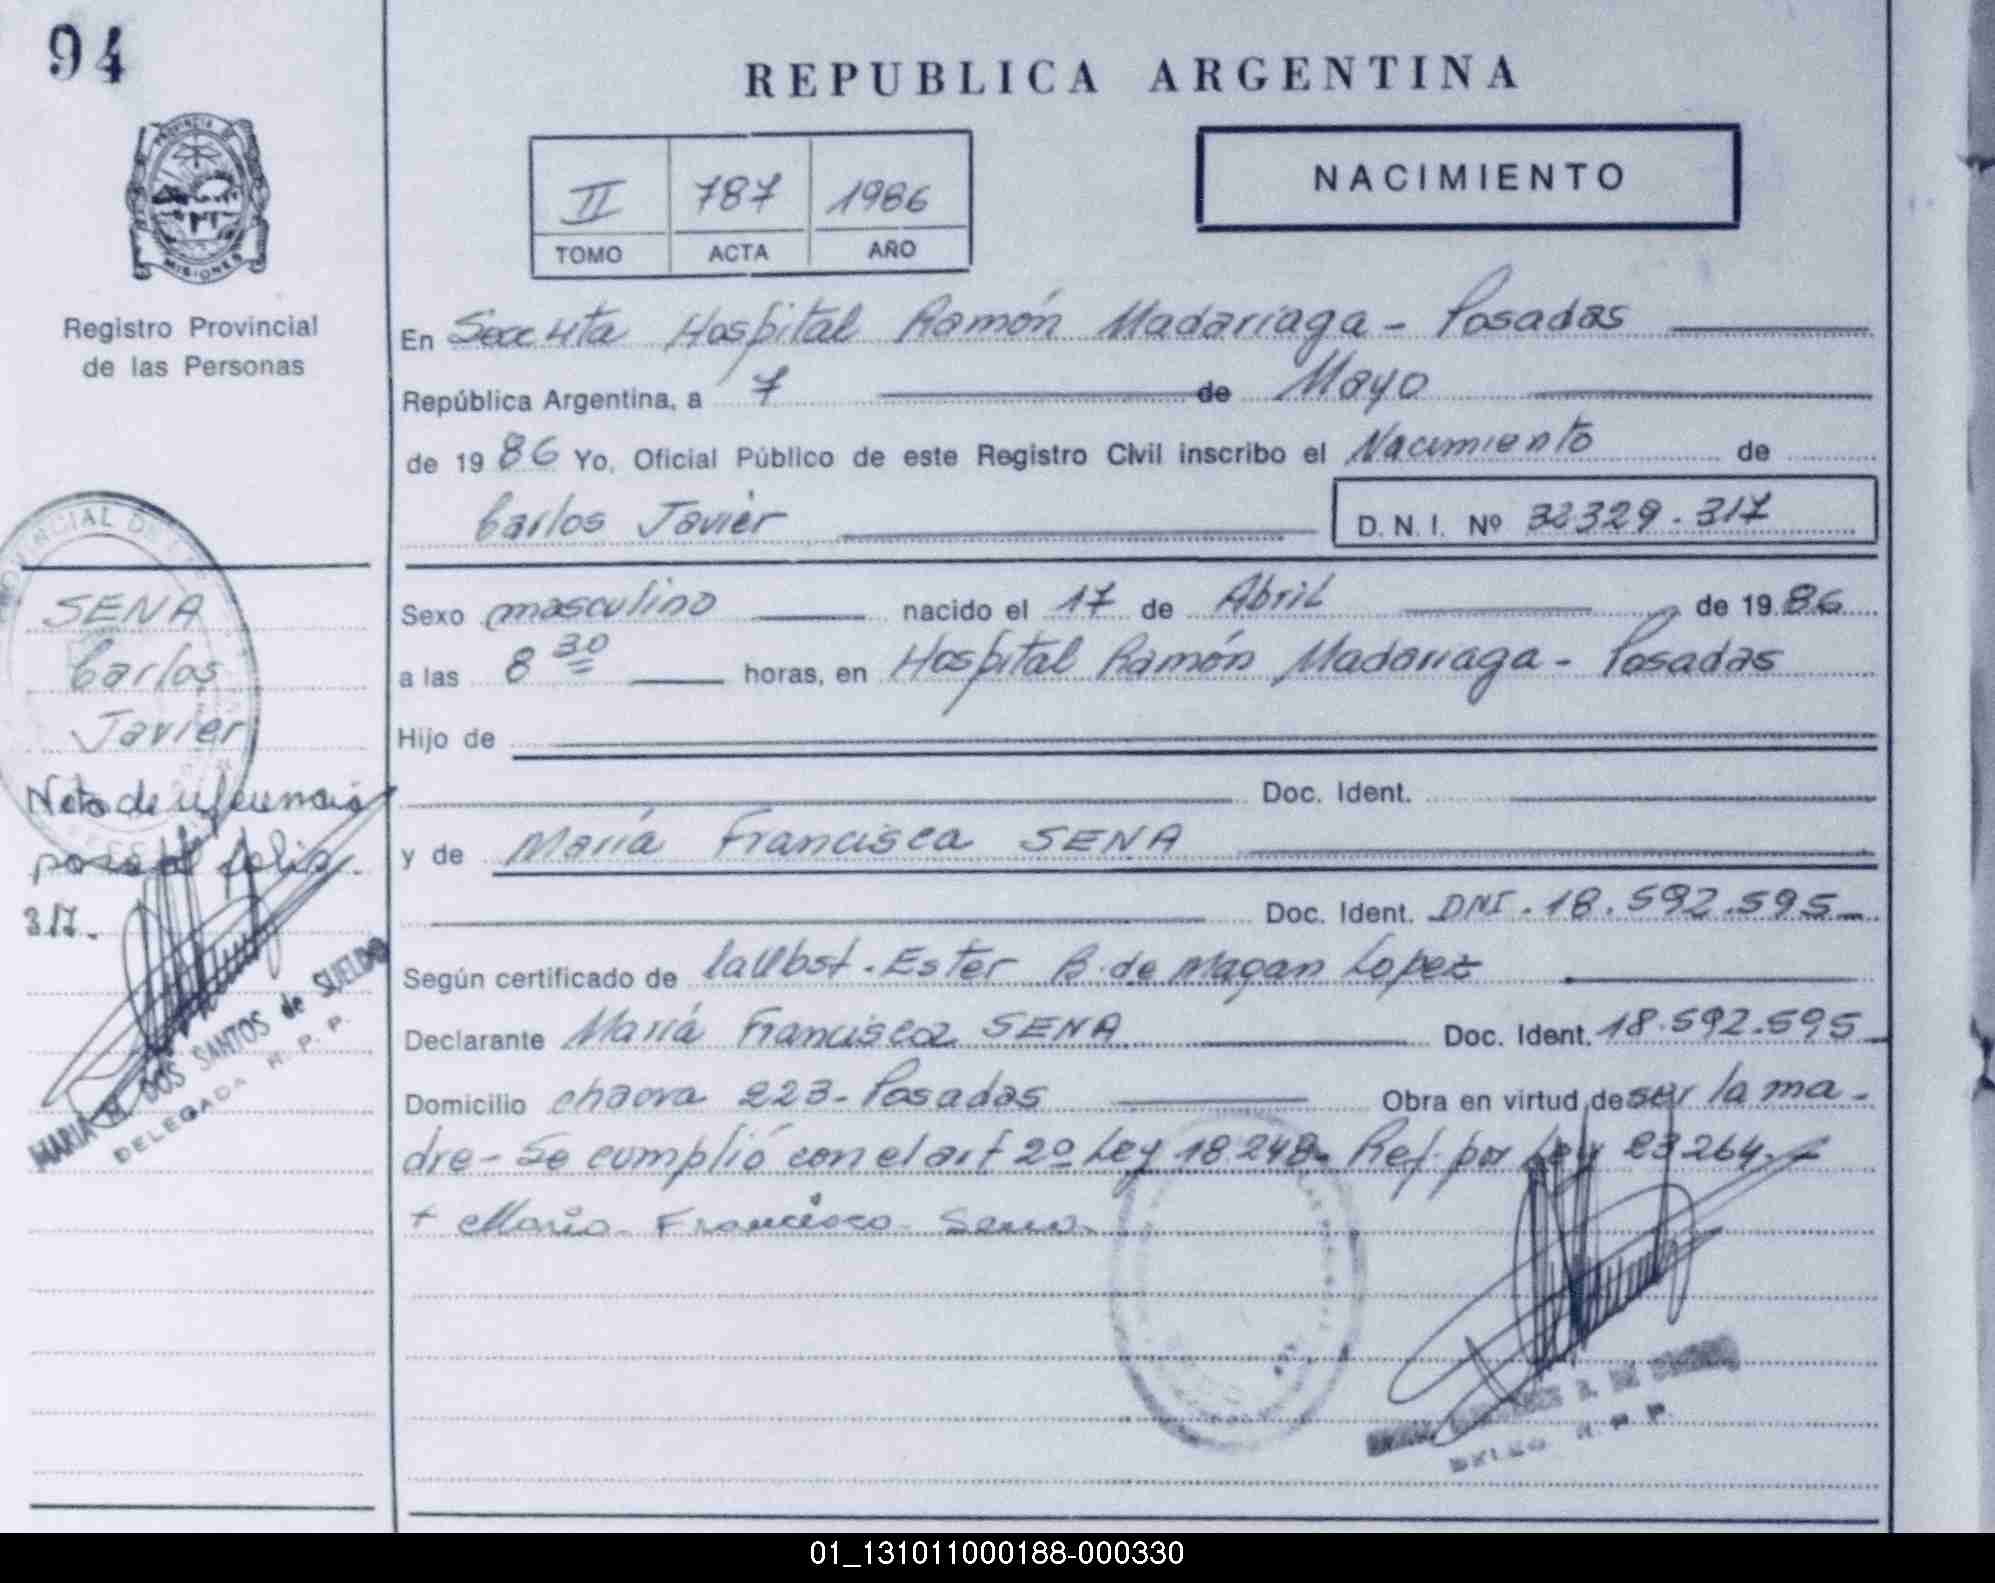 94
PROVINCIA DE
MISIONES
Registro Provincial
de las Personas
REPUBLICA ARGENTINA
II 787 1986
TOMO ACTA AÑO
NACIMIENTO
En Secc 4ta Hospital Ramón Madariaga - Posadas
República Argentina, a 7 de Mayo
de 1986 Yo, Oficial Público de este Registro Civil inscribo el Nacimiento de
Carlos Javier D. N. I. Nº 32329.317
Sexo masculino nacido el 17 de Abril de 1986
a las 8 30 horas, en Hospital Ramón Madariaga - Posadas
Hijo de
Doc. Ident.
y de María Francisca SENA
Doc. Ident. DNI. 18.592.595
Según certificado de la Obst. Ester B. de Magan Lopez
Declarante María Francisca SENA Doc. Ident. 18.592.595
Domicilio 223 - Posadas Obra en virtud de ser la ma-
dre - Se cumplió con el art 2º Ley 18248. Ref. por Ley 23264.
+ Maria Francisca Sena
SENA
Carlos
Javier
Nota de referencia
pasa al folio
317.
MARIA DOS SANTOS de SUELDO
DELEGADA R. P. P.
01_131011000188-000330